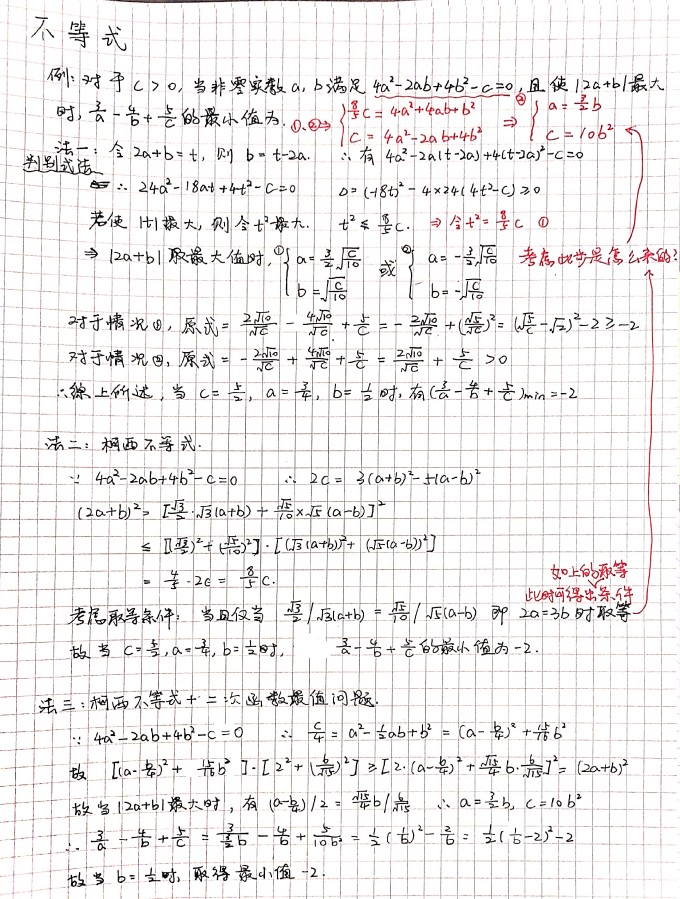 不等式
例: 对于 c>0, 当非零实数 a, b 满足 4a²-2ab+4b²-c=0, 且使 |2a+b| 最大
时, 3/a - 4/b + 5/c 的最小值为. ①,②⇒ { 8/5 c = 4a²+4ab+b² ⇒ ② { a = 3/2 b
c = 4a²-2ab+4b² c = 10b²
法一: 令 2a+b=t, 则 b=t-2a. ∴ 有 4a²-2a(t-2a)+4(t-2a)²-c=0
判别式法
∴ 24a²-18at+4t²-c=0 Δ=(-18t)²-4×24(4t²-c)≥0
若使 |t| 最大, 则令 t² 最大. t² ≤ 8/5 c. ⇒ 令 t² = 8/5 c ①
⇒ |2a+b| 取最大值时, ① { a = 3/2 √(c/10) 或 ② { a = -3/2 √(c/10) 考虑此步是怎么来的?
b = √(c/10) b = -√(c/10)
对于情况①, 原式 = 2√10/√c - 4√10/√c + 5/c = - 2√10/√c + (√5/√c)² = (√5/√c - √2)² - 2 ≥ -2
对于情况②, 原式 = - 2√10/√c + 4√10/√c + 5/c = 2√10/√c + 5/c > 0
∴ 综上所述, 当 c = 5/2, a = 3/4, b = 1/2 时, 有 (3/a - 4/b + 5/c)min = -2
法二: 柯西不等式.
∵ 4a²-2ab+4b²-c=0 ∴ 2c = 3(a+b)²+5(a-b)²
(2a+b)² = [√3/2 · √3(a+b) + √5/10 × √5(a-b)]²
≤ [(√3/2)² + (√5/10)²] · [(√3(a+b))² + (√5(a-b))²]
= 4/5 · 2c = 8/5 c.
如上的取等
此时可得出条件
考虑取等条件: 当且仅当 √3/2 / √3(a+b) = √5/10 / √5(a-b) 即 2a=3b 时取等
故当 c = 5/2, a = 3/4, b = 1/2 时, 3/a - 4/b + 5/c 的最小值为 -2.
法三: 柯西不等式 + 二次函数最值问题.
∵ 4a²-2ab+4b²-c=0 ∴ c/4 = a² - 1/2 ab + b² = (a - b/4)² + 15/16 b²
故 [(a - b/4)² + 15/16 b²] · [2² + (6/√15)²] ≥ [2·(a - b/4)² + √15/4 b · 6/√15]² = (2a+b)²
故当 |2a+b| 最大时, 有 (a - b/4)/2 = √15/4 b / 6/√15 ∴ a = 3/2 b, c = 10b²
∴ 3/a - 4/b + 5/c = 3/(3/2 b) - 4/b + 5/10b² = 1/2 (1/b)² - 2/b = 1/2 (1/b - 2)² - 2
故当 b = 1/2 时, 取得最小值 -2.